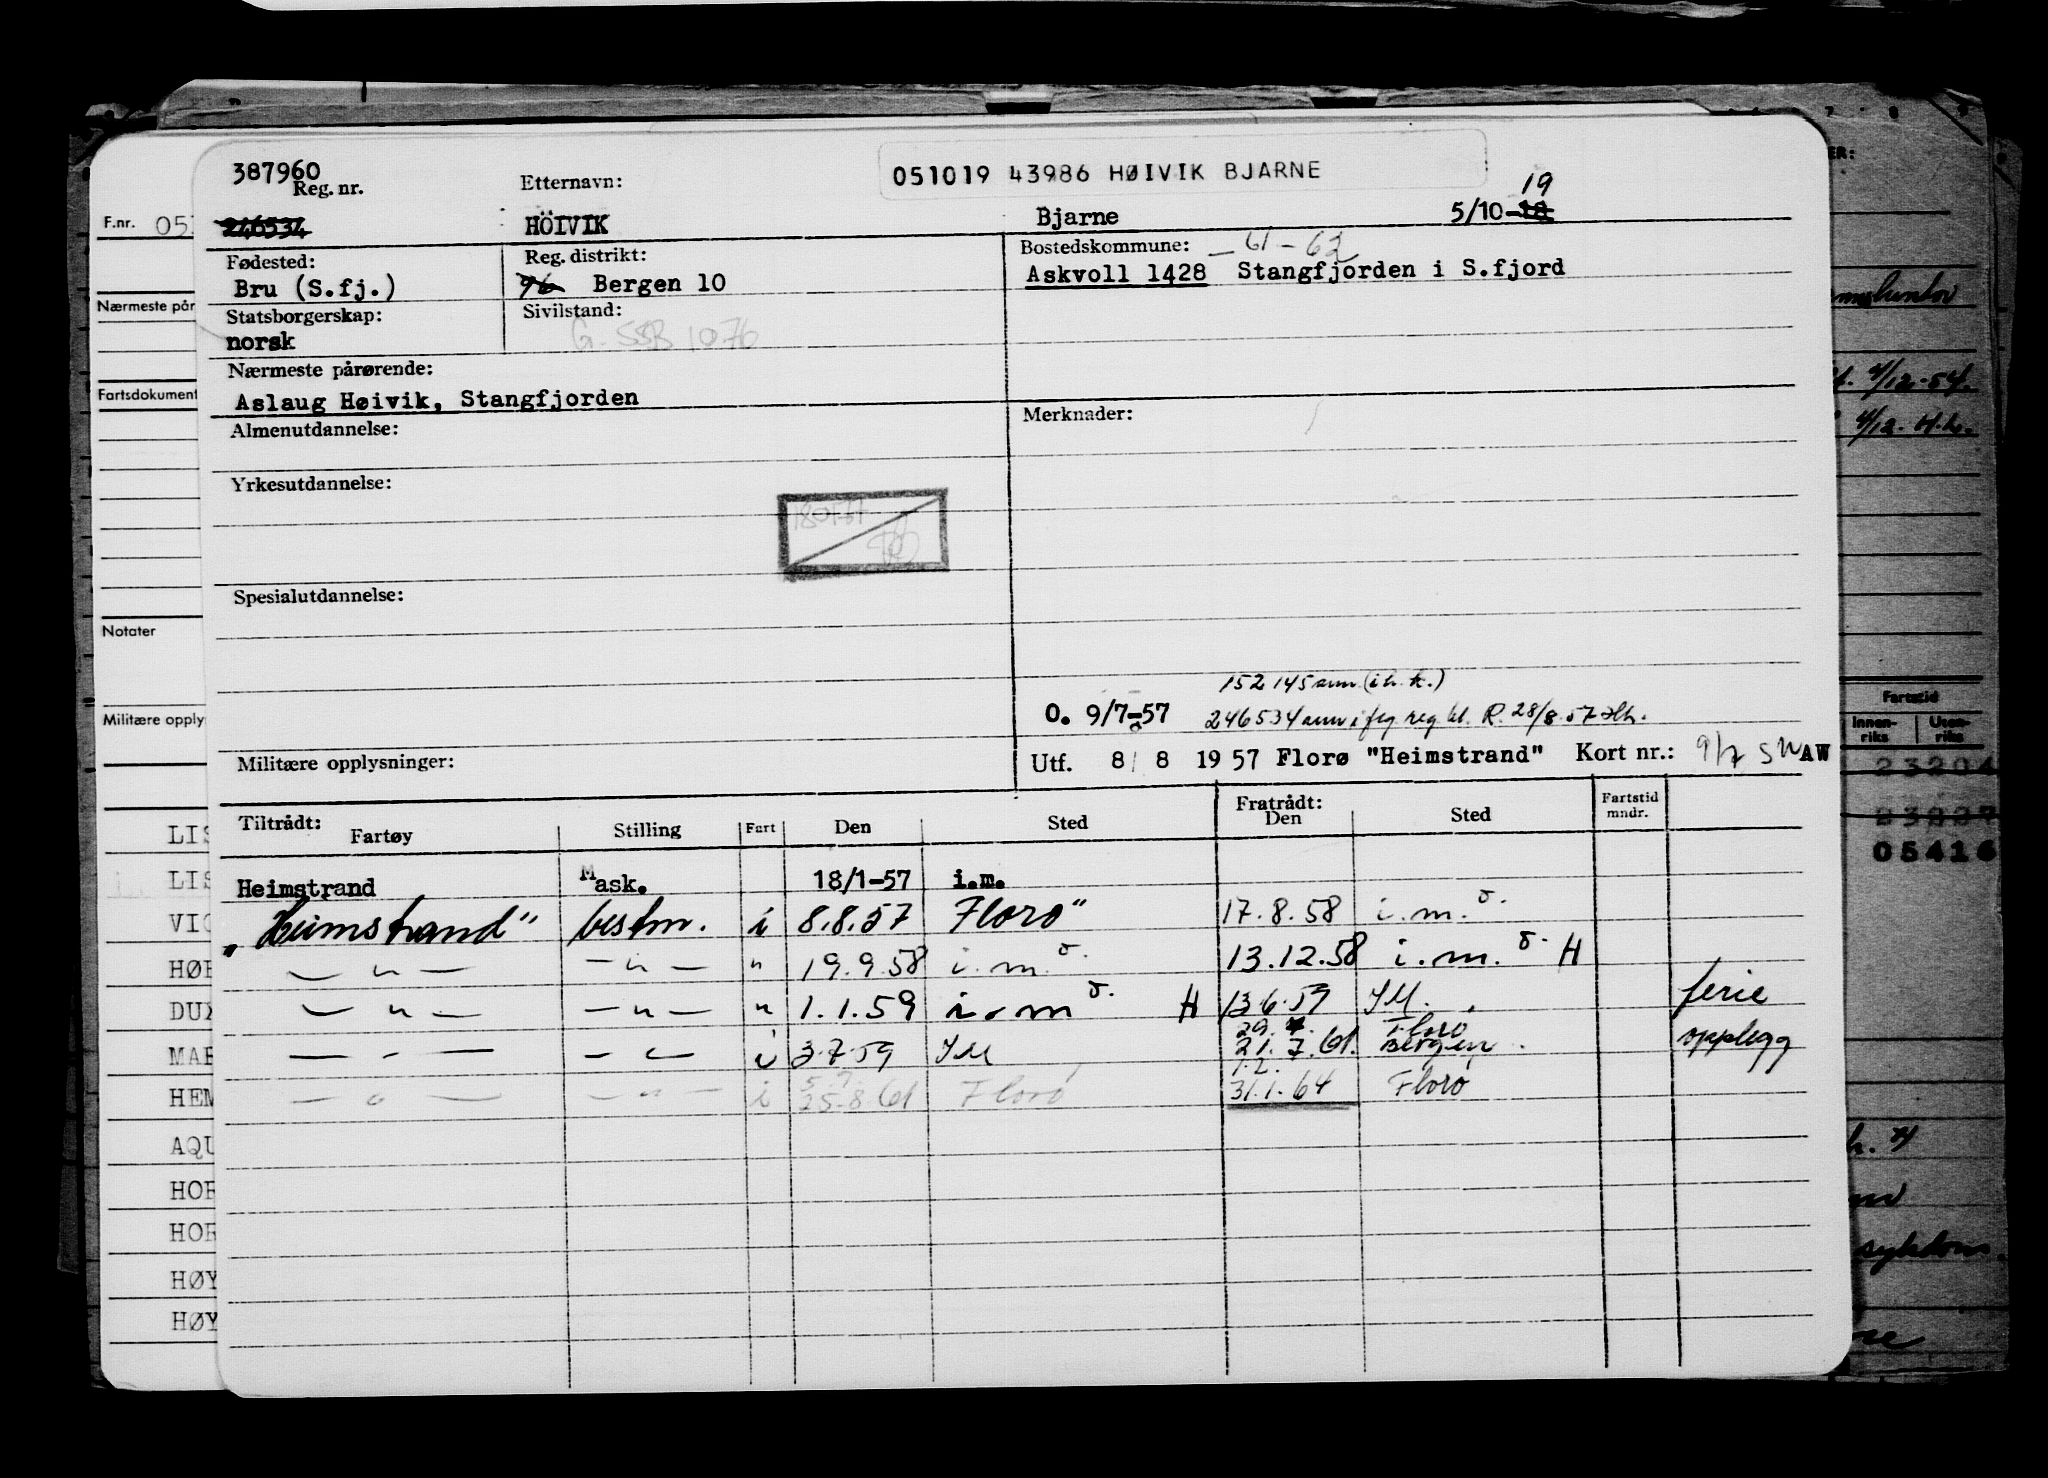 387960
Reg. nr.
Etternavn:
051019 43986 HØIVIK BJARNE
19
F.nr. 05
246534
HÖIVIK
Bjarne
5/10-18
Fødested:
Reg. distrikt:
Bostedskommune:
— 61 - 62
Bru (S.fj.)
96 Bergen 10
Askvoll 1428 Stangfjorden i S.fjord
Statsborgerskap:
Sivilstand:
norsk
G. SSB 1076
Nærmeste pår
Nærmeste pårørende:
Aslaug Høivik, Stangfjorden
Fartsdokument
Almenutdannelse:
Merknader:
4/12-54.
4/12. H.L.
Yrkesutdannelse:
Spesialutdannelse:
Notater
152145 ann (i h. k.)
O. 9/7-57
246534 ann i flg reg kl. R. 28/8.57
Militære opply
Militære opplysninger:
Utf. 8/ 8 1957 Florø "Heimstrand" Kort nr.: 9/7 SW AW
Fartstid
Innen-riks
Uten-riks
23204
23227
05416
Tiltrådt:
Fartøy
Stilling
Fart
Den
Sted
Fratrådt:
Den
Sted
Fartstid mndr.
LIS
LIS
VIC
HØE
DUX
MAR
HEM
AQU
HOR
HOR
HØY
HØY
Heimstrand Mask. 18/1-57 i.m.
"Heimstrand" bestm. i 8.8.57 Florø" 17.8.58 i.m.o.
— " — — " — " 19.9.58 i.m.o. 13.12.58 i.m.o. H
— " — — " — " 1.1.59 i.m.o. H 13.6.59 IM. ferie
29.7. Florø
— " — — " — i 3.7.59 IM 21.7.61. Bergen. opplegg
5.9. 1.2.
— " — — " — i 25.8.61 Florø 31.1.64 Florø
sykdom.